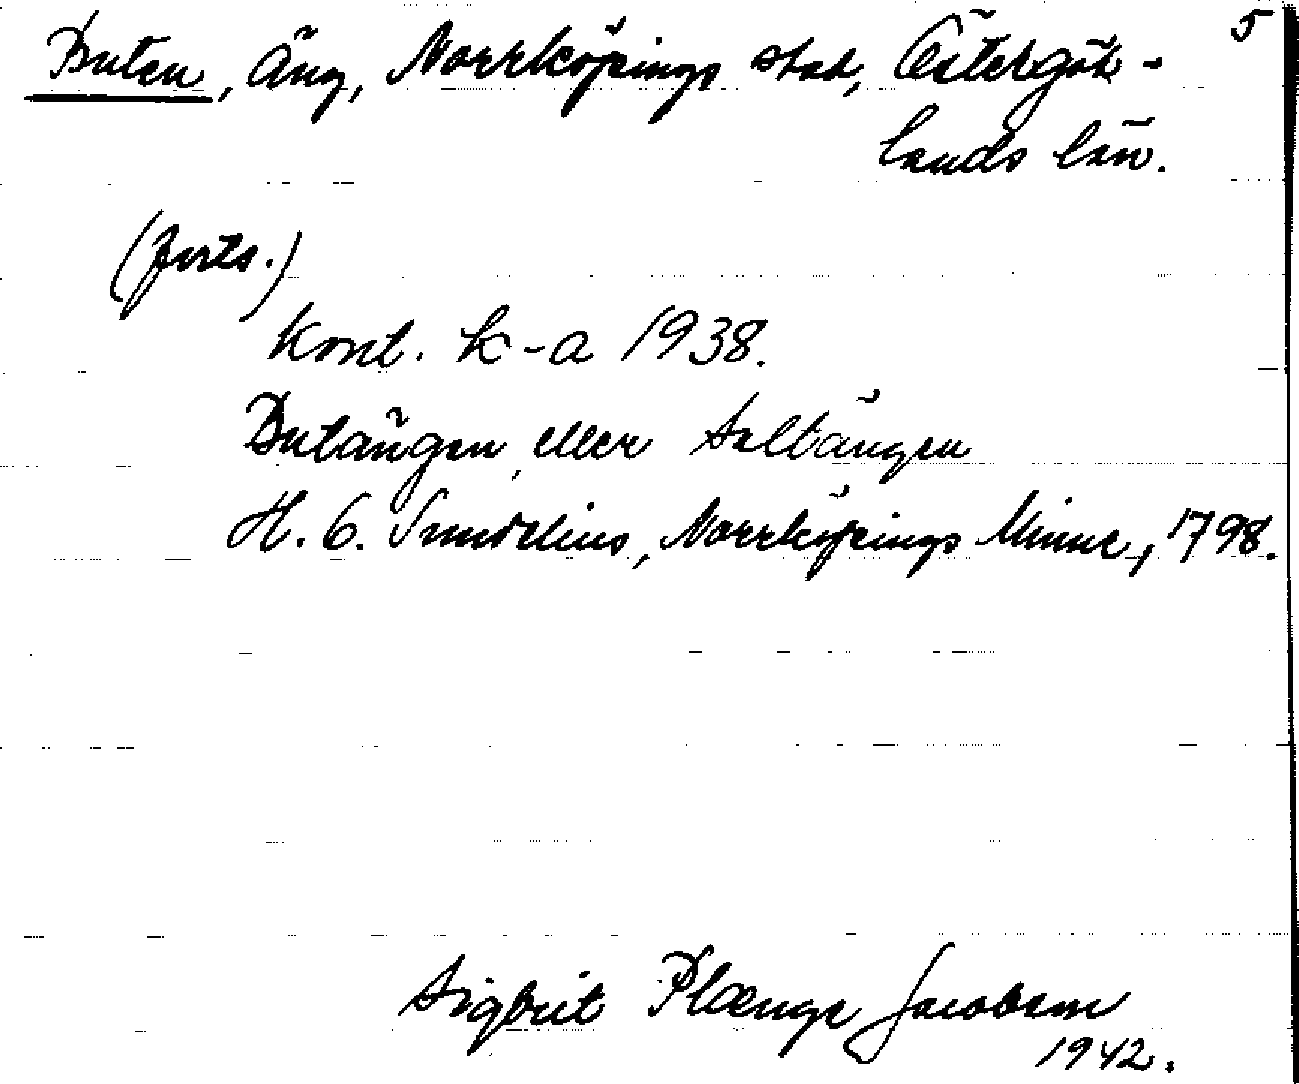 5
Buten, äng, Norrköpings stad, Östergöt-
lands län.
(forts.)
Kont. k-a 1938.
Butängen, eller Saltängen
H. O. Sundelius, Norrköpings Minne, 1798.
Sigbrit Plænge Jacobson
1942.